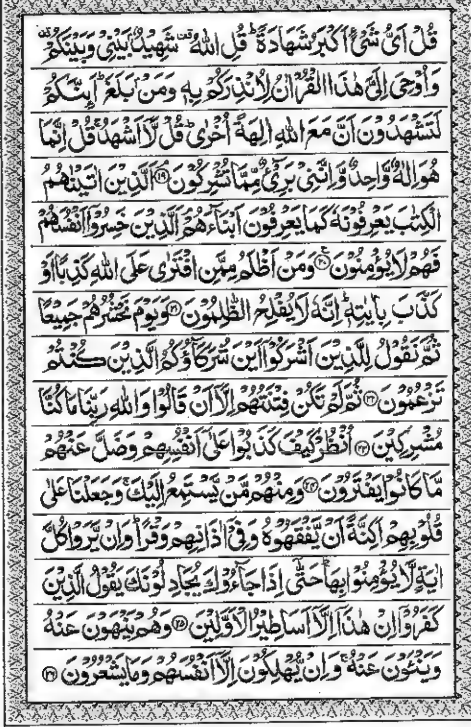 قُلْ اَیُّ شَیْءٍ اَكْبَرُ شَهَادَةً ؕ قُلِ اللّٰهُ ۙ شَهِیْدٌۢ بَیْنِیْ وَبَیْنَكُمْ ۫
وَاُوْحِیَ اِلَیَّ هٰذَا الْقُرْاٰنُ لِاُنْذِرَكُمْ بِهٖ وَمَنْۢ بَلَغَ ؕ اَئِنَّكُمْ
لَتَشْهَدُوْنَ اَنَّ مَعَ اللّٰهِ اٰلِهَةً اُخْرٰی ؕ قُلْ لَّاۤ اَشْهَدُ ۚ قُلْ اِنَّمَا
هُوَ اِلٰهٌ وَّاحِدٌ وَّاِنَّنِیْ بَرِیْٓءٌ مِّمَّا تُشْرِكُوْنَ ۝۱۹ اَلَّذِیْنَ اٰتَیْنٰهُمُ
الْكِتٰبَ یَعْرِفُوْنَهٗ كَمَا یَعْرِفُوْنَ اَبْنَآءَهُمْ ۘ اَلَّذِیْنَ خَسِرُوْۤا اَنْفُسَهُمْ
فَهُمْ لَا یُؤْمِنُوْنَ ۝۲۰ وَمَنْ اَظْلَمُ مِمَّنِ افْتَرٰی عَلَی اللّٰهِ كَذِبًا اَوْ
كَذَّبَ بِاٰیٰتِهٖ ؕ اِنَّهٗ لَا یُفْلِحُ الظّٰلِمُوْنَ ۝۲۱ وَیَوْمَ نَحْشُرُهُمْ جَمِیْعًا
ثُمَّ نَقُوْلُ لِلَّذِیْنَ اَشْرَكُوْۤا اَیْنَ شُرَكَآؤُكُمُ الَّذِیْنَ كُنْتُمْ
تَزْعُمُوْنَ ۝۲۲ ثُمَّ لَمْ تَكُنْ فِتْنَتُهُمْ اِلَّاۤ اَنْ قَالُوْا وَاللّٰهِ رَبِّنَا مَا كُنَّا
مُشْرِكِیْنَ ۝۲۳ اُنْظُرْ كَیْفَ كَذَبُوْا عَلٰۤی اَنْفُسِهِمْ وَضَلَّ عَنْهُمْ
مَّا كَانُوْا یَفْتَرُوْنَ ۝۲۴ وَمِنْهُمْ مَّنْ یَّسْتَمِعُ اِلَیْكَ ۚ وَجَعَلْنَا عَلٰی
قُلُوْبِهِمْ اَكِنَّةً اَنْ یَّفْقَهُوْهُ وَفِیْۤ اٰذَانِهِمْ وَقْرًا ؕ وَاِنْ یَّرَوْا كُلَّ
اٰیَةٍ لَّا یُؤْمِنُوْا بِهَا ؕ حَتّٰۤی اِذَا جَآءُوْكَ یُجَادِلُوْنَكَ یَقُوْلُ الَّذِیْنَ
كَفَرُوْۤا اِنْ هٰذَاۤ اِلَّاۤ اَسَاطِیْرُ الْاَوَّلِیْنَ ۝۲۵ وَهُمْ یَنْهَوْنَ عَنْهُ
وَیَنْـَٔوْنَ عَنْهُ ۚ وَاِنْ یُّهْلِكُوْنَ اِلَّاۤ اَنْفُسَهُمْ وَمَا یَشْعُرُوْنَ ۝۲۶